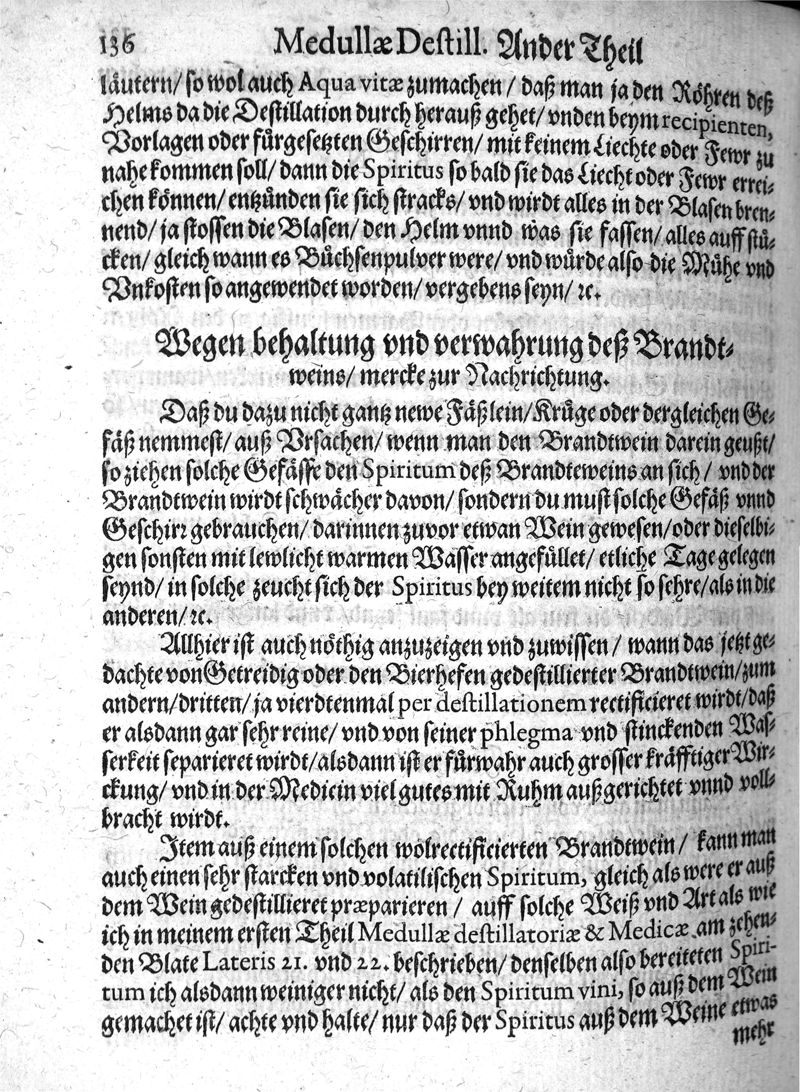 136 Medullæ Destill. Ander Theil
läutern/ so wol auch Aqua vitæ zumachen/ daß man ja den Röhren deß
Helms da die Destillation durch herauß gehet/ vnden beym recipienten,
Vorlagen oder fürgesetzten Geschirren/ mit keinem Liechte oder Fewr zu
nahe kommen soll/ dann die Spiritus so bald sie das Liecht oder Fewr errei-
chen können/ entzünden sie sich stracks/ vnd wirdt alles in der Blasen bren-
nend/ ja stossen die Blasen/ den Helm vnnd was sie fassen/ alles auff stü-
cken/ gleich wann es Büchsenpulver were/ vnd würde also die Mühe vnd
Vnkosten so angewendet worden/ vergebens seyn/ ꝛc.
Wegen behaltung vnd verwahrung deß Brandt-
weins/ mercke zur Nachrichtung.
Daß du dazu nicht gantz newe Fäßlein/ Krüge oder dergleichen Ge-
fäß nemmest/ auß Vrsachen/ wenn man den Brandtwein darein geußt/
so ziehen solche Gefässe den Spiritum deß Brandteweins an sich/ vnd der
Brandtwein wirdt schwächer davon/ sondern du must solche Gefäß vnnd
Geschirꝛ gebrauchen/ darinnen zuvor etwan Wein gewesen/ oder dieselbi-
gen sonsten mit lewlicht warmen Wasser angefüllet/ etliche Tage gelegen
seynd/ in solche zeucht sich der Spiritus bey weitem nicht so sehre/ als in die
anderen/ ꝛc.
Allhier ist auch nöthig anzuzeigen vnd zuwissen/ wann das jetzt ge-
dachte von Getreidig oder den Bierhefen gedestillierter Brandtwein/ zum
andern/ dritten/ ja vierdtenmal per destillationem rectificieret wirdt/ daß
er alsdann gar sehr reine/ vnd von seiner phlegma vnd stinckenden Was-
serkeit separieret wirdt/ alsdann ist er fürwahr auch grosser kräfftiger Wir-
ckung/ vnd in der Medicin viel gutes mit Ruhm außgerichtet vnnd voll-
bracht wirdt.
Item auß einem solchen wolrectificierten Brandtwein/ kann man
auch einen sehr starcken vnd volatilischen Spiritum, gleich als were er auß
dem Wein gedestillieret præparieren/ auff solche Weiß vnd Art als wie
ich in meinem ersten Theil Medullæ destillatoriæ & Medicæ am zehen-
den Blate Lateris 21. vnd 22. beschrieben/ denselben also bereiteten Spiri-
tum ich alsdann weiniger nicht/ als den Spiritum vini, so auß dem Wein
gemachet ist/ achte vnd halte/ nur daß der Spiritus auß dem Weine etwas
mehr